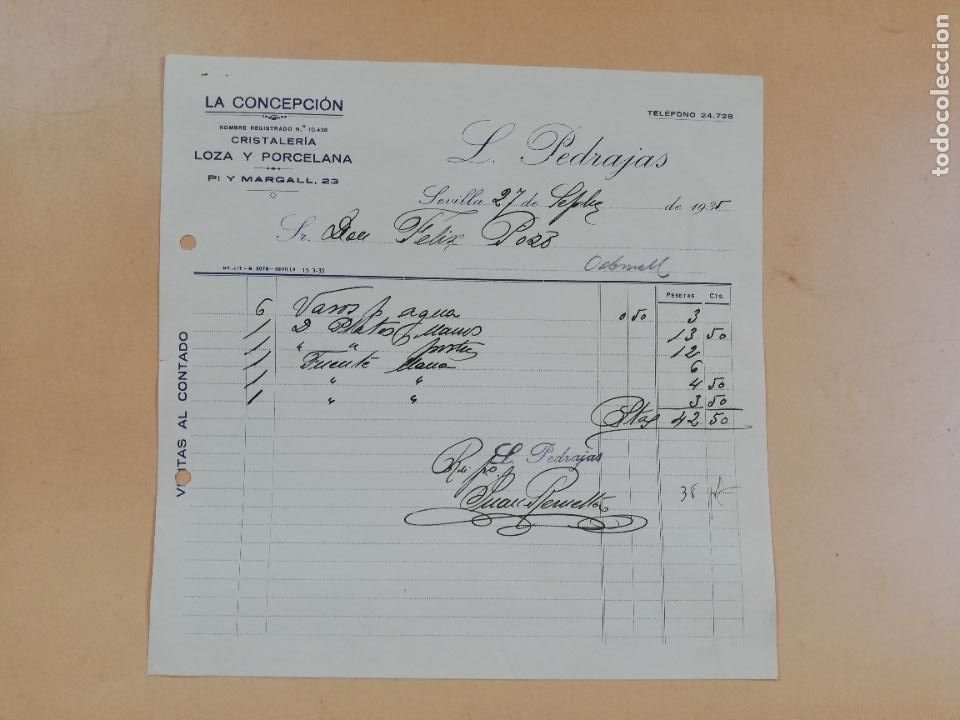 LA CONCEPCIÓN
NOMBRE REGISTRADO N.º 10.438
CRISTALERÍA
LOZA Y PORCELANA
PI Y MARGALL, 23
TELÉFONO 24,728
L. Pedrajas
Sevilla 27 de Sepbre de 1935
Sr. Don Felix Pozo
IMP.-LIT.-M. SOTO-SEVILLA 15-3-35
PESETAS CTS.
6 Vasos p. agua 0 50 3
1 D Platos llanos 13 50
1 " " postre 12
1 Fuente llana 6
1 " " 4 50
1 " " 3 50
Ptas 42 50
L. Pedrajas
Juan
38
VENTAS AL CONTADO
todocoleccion
todocoleccion.net